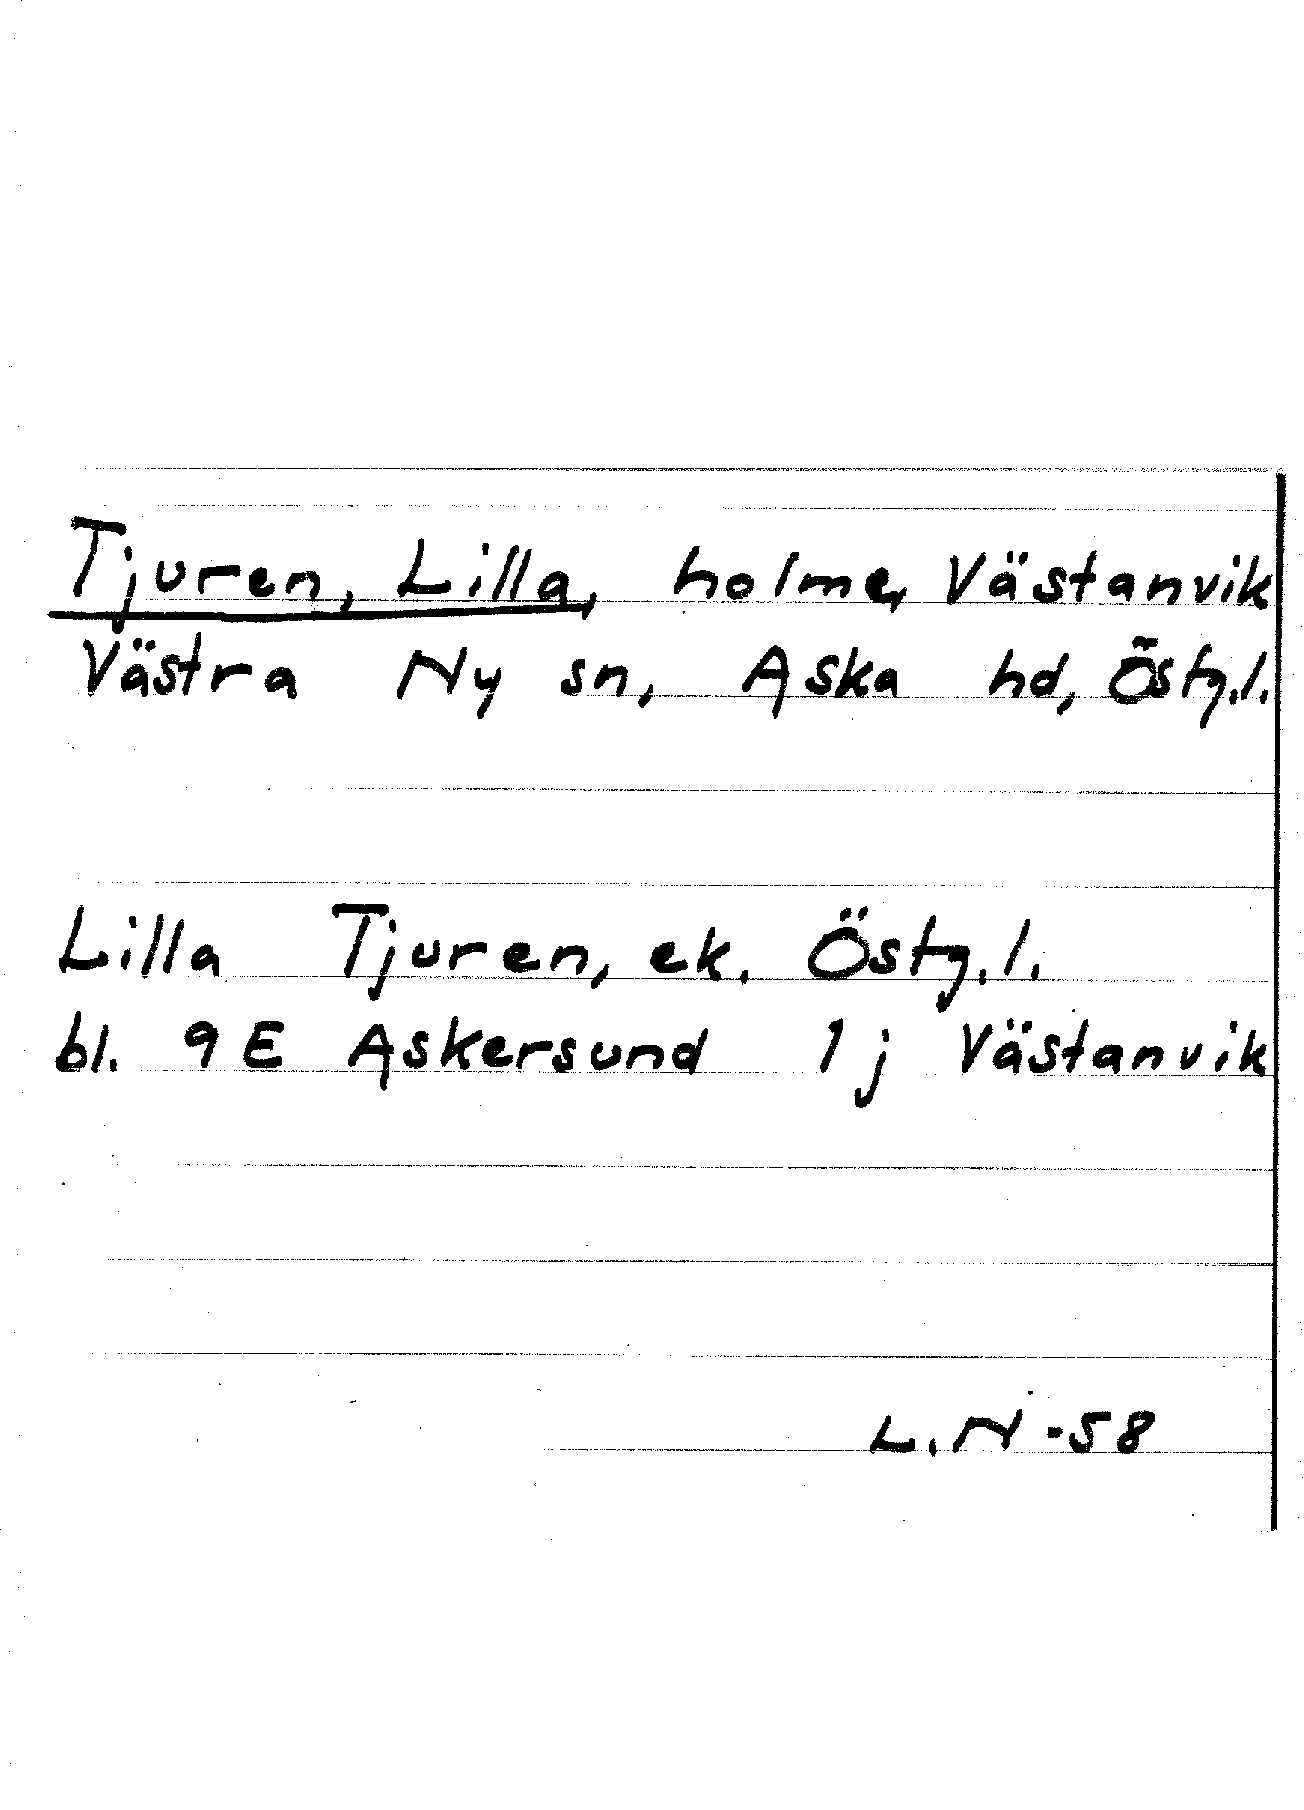 Tjuren, Lilla, holme, Västanvik
Västra Ny sn, Aska hd, Östg.l.
Lilla Tjuren, ek. Östg.l.
bl. 9E Askersund 1j Västanvik
L.N -58